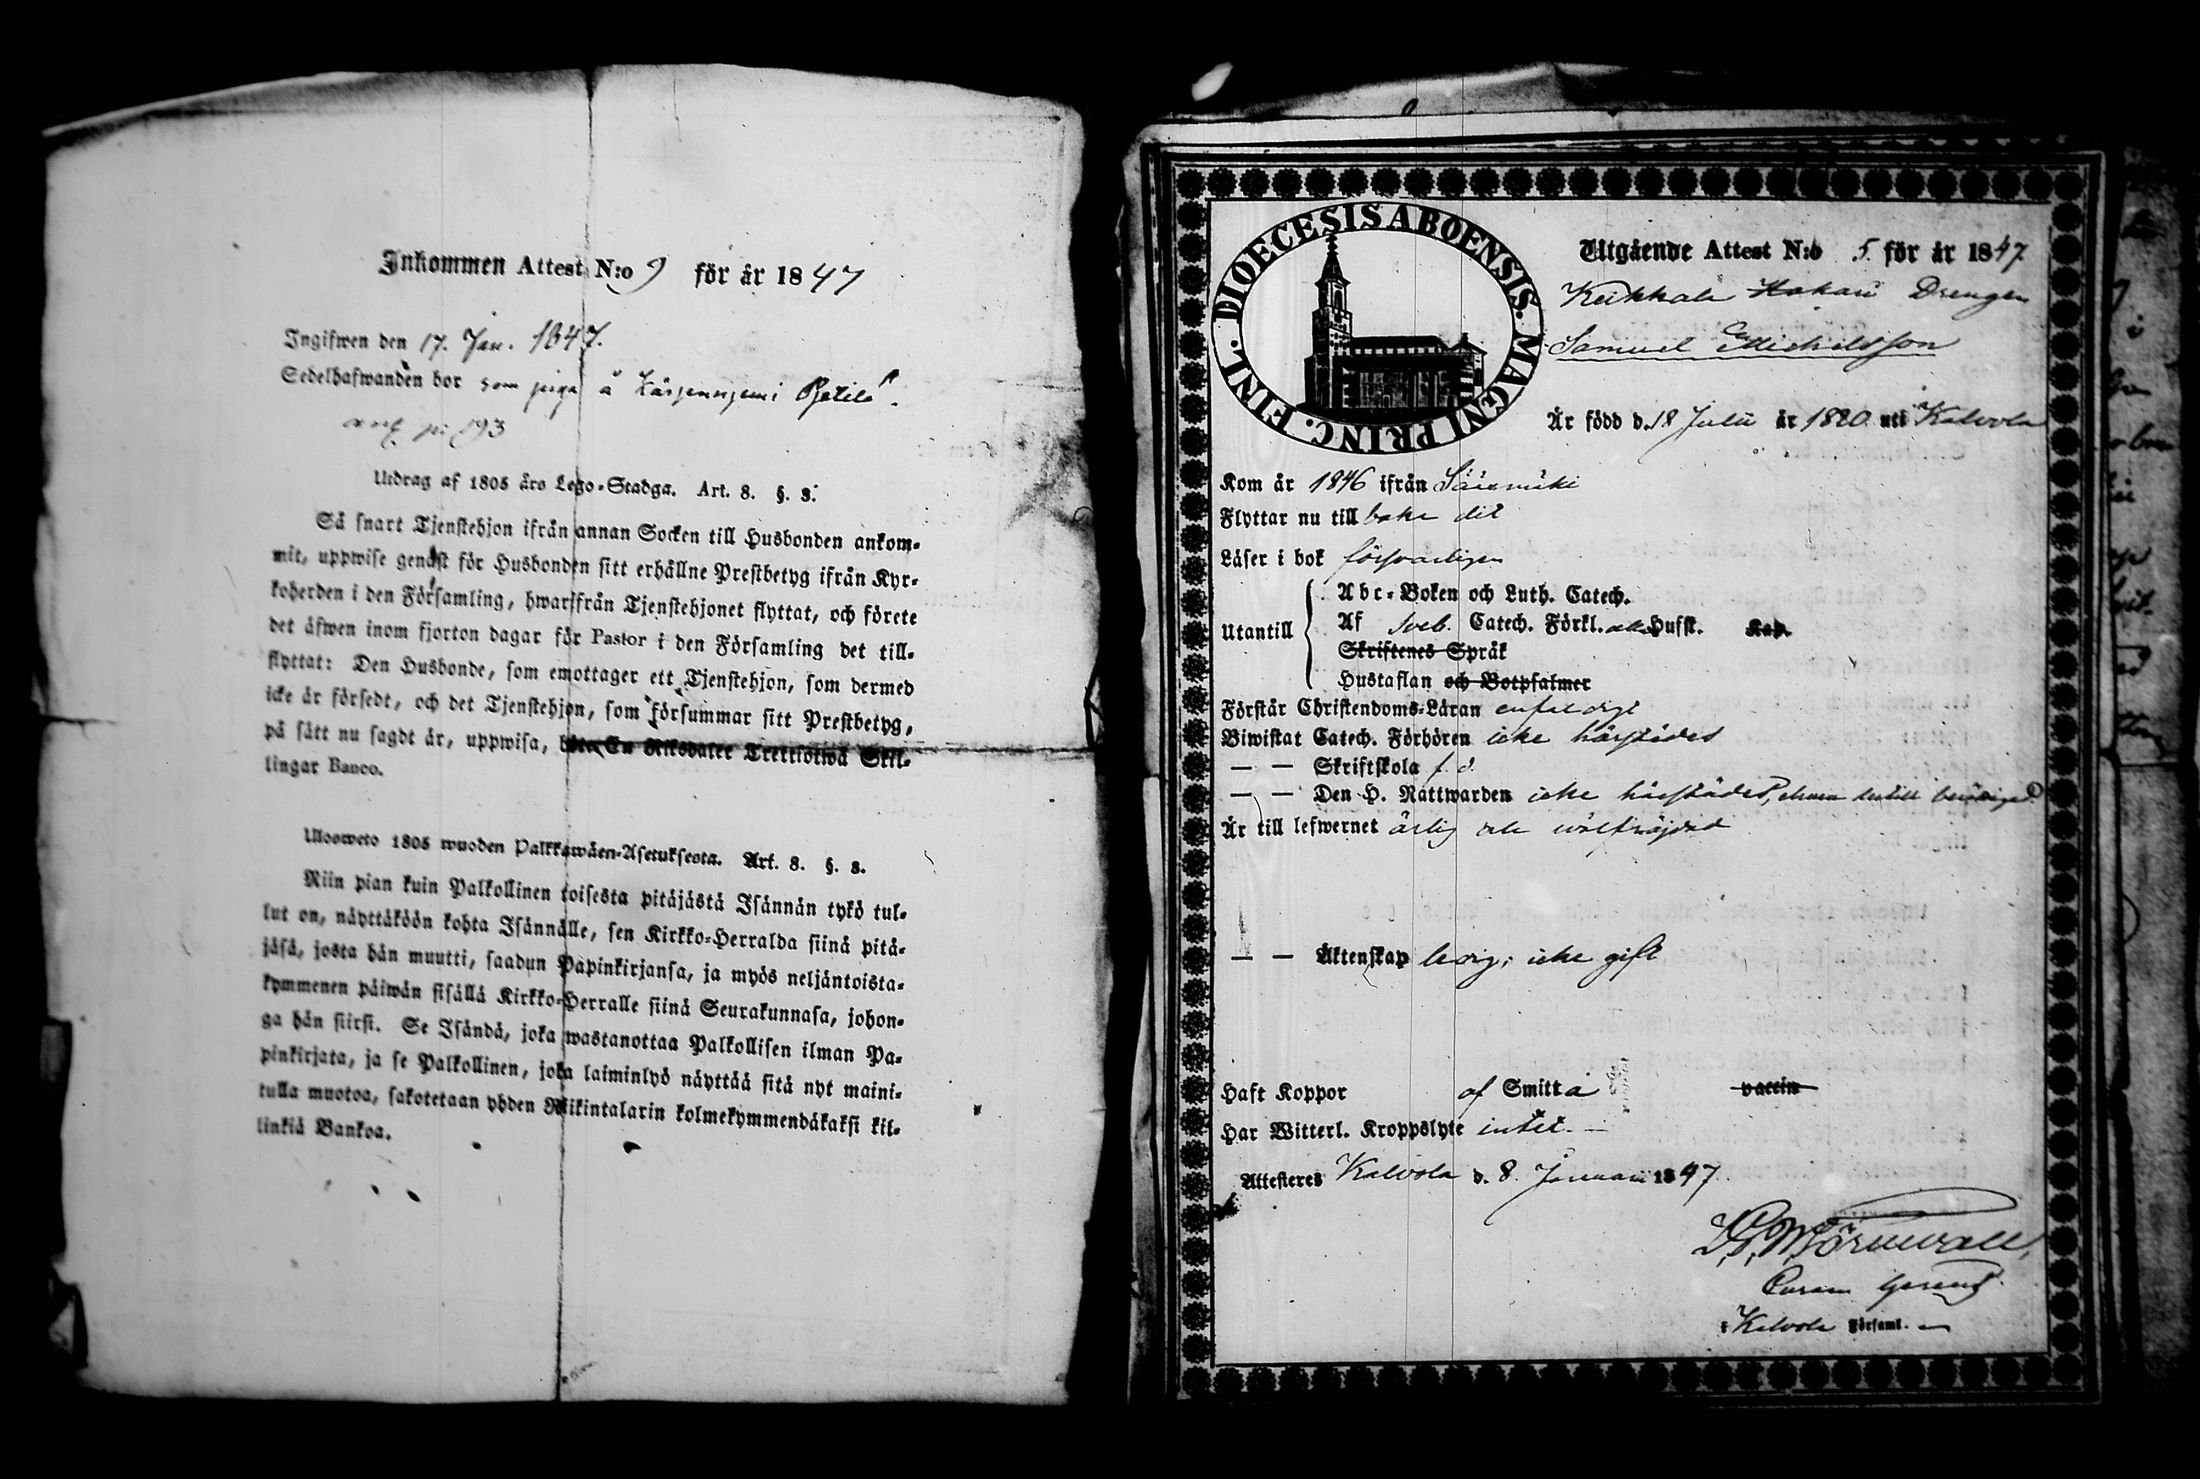 Inkommen Attest N:o 9 för år 1847
Ingifwen den 17. Jan. 1847.
Sedelhafwanden bor som piga å
Utdrag af 1805 års Lego-Stadga. Art. 8. §. 3.
Så snart Tjenstehjon ifrån annan Socken till Husbonden ankom-
mit, uppwise genast för Husbonden sitt erhållne Prestbetyg ifrån Kyr-
koherden i den Församling, hwarifrån Tjenstehjonet flyttat, och förete
det äfwen inom fjorton dagar för Pastor i den Församling det till-
flyttat: Den Husbonde, som emottager ett Tjenstehjon, som dermed
icke är försedt, och det Tjenstehjon, som försummar sitt Prestbetyg,
på sätt nu sagdt är, uppwisa, böte En Riksdaler Trettiotwå Skil-
lingar Banco.
Ulosweto 1805 wuoden Palkkawäen-Asetuksesta. Art. 8. §. 3.
Niin pian kuin Palkollinen toisesta pitäjästä Isännän tykö tul-
lut on, näyttäköön kohta Isännälle, sen Kirkko-Herralda siinä pitä-
jäsä, josta hän muutti, saadun Papinkirjansa, ja myös neljäntoista-
kymmenen päiwän sisällä Kirkko-Herralle siinä Seurakunnasa, johon-
ga hän siirsi. Se Isändä, joka wastanottaa Palkollisen ilman Pa-
pinkirjata, ja se Palkollinen, joka laiminlyö näyttää sitä nyt maini-
tulla muotoa, sakotetaan yhden Riikintalarin kolmekymmendäkaksi kil-
linkiä Bankoa.
DIOECESIS ABOENSIS. MAGNI PRINC. FINL.
Utgående Attest N:o 5 för år 1847
Keikkala Hakari Drengen
Samuel Michelsson
Är född d. 18 Julii år 1820 uti Kalvola
Kom år 1846 ifrån Sääsmäki
Flyttar nu till baka dit
Läser i bok försvarligen
Utantill
Abc-Boken och Luth. Catech.
Af Sveb. Catech. Förkl. och Husft. Kap.
Skriftenes Språk
Hustaflan och Botpsalmer
Förstår Christendoms-Läran enfaldigt
Biwistat Catech. Förhören icke härstädes
— — Skriftskola f. d.
— — Den H. Nattwarden icke härstädes,
Är till lefwernet ärlig och wälfräjdad
— — Äktenskap ledig; icke gift
Haft Koppor af Smitta vaccin
Har Witterl. Kroppslyte intet. —
Attesteres Kalvola d. 8. Januari 1847.
Curam gerens
i Kalvola Församl. —